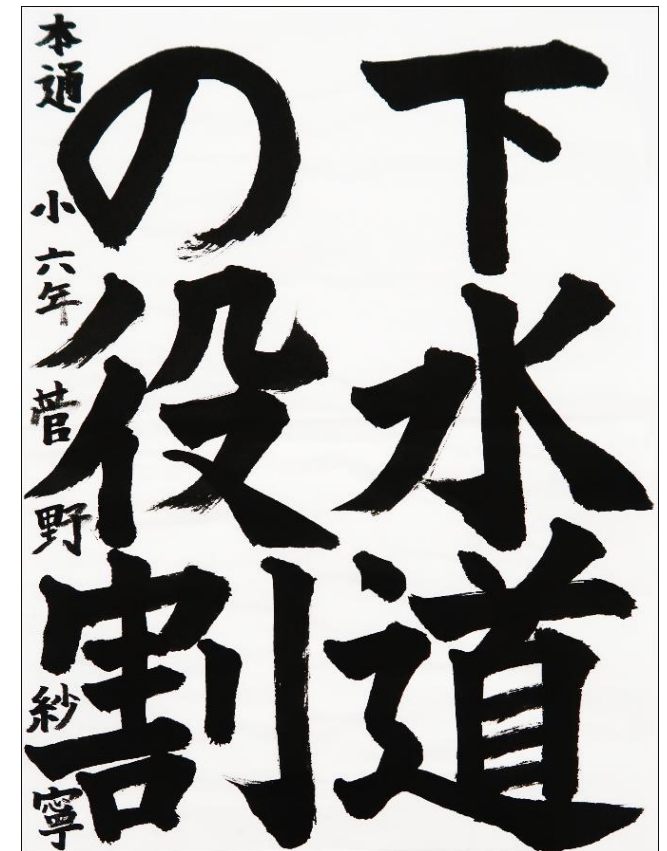 下水道
の役割
本通小六年菅野紗寧